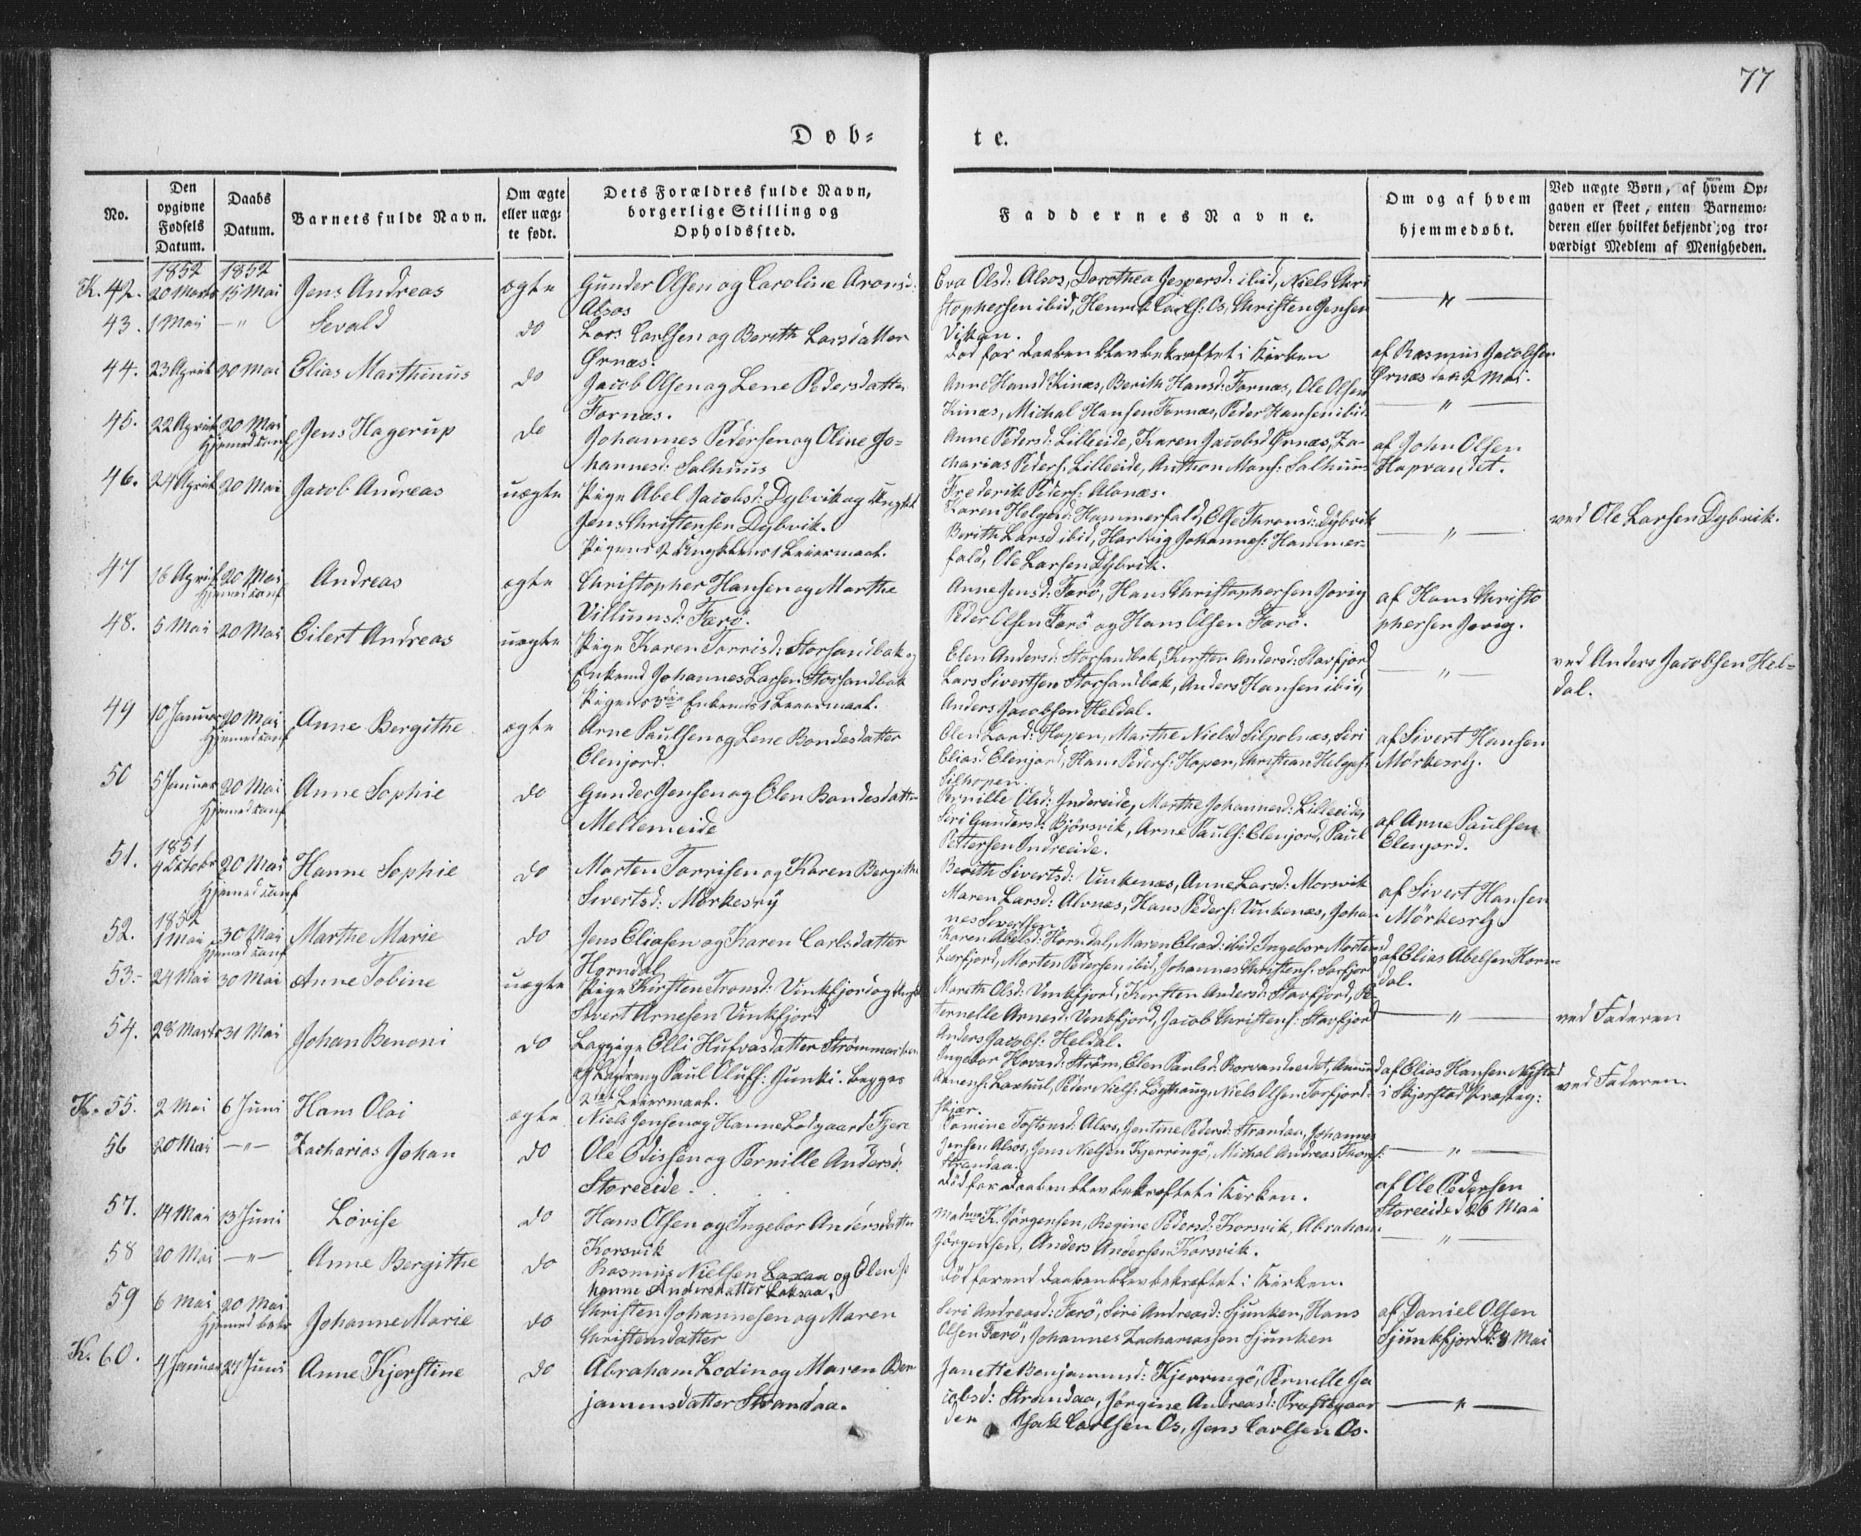 77
Døb=
te.
No.
Den opgivne Fødsels Datum.
Daabs Datum.
Barnets fulde Navn.
Om ægte eller uæg- te født.
Dets Forældres fulde Navn, borgerlige Stilling og Opholdssted.
Faddernes Navne.
Om og af hvem hjemmedøbt.
Ved uægte Børn, af hvem Op- gaven er skeet, enten Barnemo- deren eller hvilket bekjendt og tro- værdigt Medlem af Menigheden.
1852 1852
K. 42. 20 Marts 15 Mai Jens Andreas ægte Gunder Olsen og Caroline Aronsd:
Alsos
Eva Olsd: Alsos, Dorothea Jespersd: ibid, Niels Chri
stophersen ibid, Henrik Carls: Os, Christen Jensen
Vikan.
43. 1 Mai —"— Sevald do Lars Carlsen og Berith Larsdatter
Ørnæs.
død før Daaben blev bekræftet i Kirken
af Rasmus Jacobsen
Ørnæs den 2 Mai.
44. 23 April 20 Mai Elias Marthinus do Jacob Olsen og Lene Pedersdatter
Fornæs.
Anne Hansd: Kinæs, Berith Hansd: Fornæs, Ole Olsen
Kinæs, Michal Hansen Fornæs, Peder Hansen ibid.
— " —
45. 22 April 20 Mai Jens Hagerup do Johannes Pedersen og Oline Jo-
hannesd: Salhuus
Anne Pedersd: Lilleeide, Karen Jacobsd Ørnæs, Za-
charias Peders: Lilleeide, Anthon Mons: Salhuus
Frederik Peders: Alonæs.
af John Olsen
Hopvandet.
46. 24 April 20 Mai Jacob Andreas uægte Pige Abel Jacobsd: Dybvik og Ungkl
Jens Christensen Dybvik.
Pigens 2 Ungklens 1 Leiermaal.
Karen Helgesd: Hammerfald, Else Thronsd: Dybvik
Berith Larsd ibid, Hartvig Johannes: Hammer-
fald, Ole Larsen Dybvik.
— " —
ved Ole Larsen Dybvik.
47 16 April 20 Mai Andreas ægte Christopher Hansen og Marthe
Villumsd: Færø.
Anne Jensd: Farö, Hans Christophersen Jovig
Peder Olsen Farö og Hans Olsen Farö.
af Hans Christo
phersen Jovig.
48. 5 Mai 20 Mai Eilert Andreas uægte Pige Karen Torrisd: Storsandbak og
Enkemd Johannes Larsen Storsandbak
Pigens 3die Enkemds 1 Leiermaal.
Elen Andersd: Storsandbak, Kersten Andersd: Storfjord
Lars Sivertsen Storsandbak, Anders Hansen ibid,
Anders Jacobsen Heldal.
— " —
ved Anders Jacobsen Hel-
dal.
49 10 Januar 20 Mai Anne Bergithe ægte Arne Paulsen og Lene Bondesdatter
Elenjord.
Elias: Elenjord, Hans Peders: Hopen, Christian Helges:
af Sivert Hansen
Mørkesry.
50 5 Januar 20 Mai Anne Sophie do Gunder Jensen og Elen Bondesdatter
Mellemeide
Pernille Olsd: Indreeide, Marthe Johannesd: Lilleeide,
Siri Gundersd: Björsvik, Arne Pauls: Elenjord, Paul
Pettersen Indreeide.
af Arne Paulsen
Elenjord.
1851
51. 9 Oktober 20 Mai Hanne Sophie do Morten Torrisen og Karen Bergithe
Sivertsd: Mørkesry
Berith Sivertsd: Vinkenæs, Anne Larsd: Morsvik
Maren Larsd: Alvnæs, Hans Peders: Vinkenæs, Johan-
nes Sivertsen
af Sivert Hansen
Mørkesry.
1852
52. 1 Mai 30 Mai Marthe Marie do Jens Eliasen og Karen Carlsdatter
Horndal
Karen Abelsd: Horndal, Maren Eliasd: ibid, Ingebor Mortensd
Sørfjord, Morten Pedersen ibid, Johannes Christens: Sørfjord
af Elias Abelsen Horn-
dal.
53- 24 Mai 30 Mai Anne Tobine uægte Pige Kirsten Tronsd: Vinkfjord og Ungkl
Sivert Arnesen Vinkfjord
Mareth Olsd: Vinkfjord, Kersten Andersd: Storfjord, Pe
ternelle Arnesd: Vinkfjord, Jacob Christens: Storfjord
Anders Jacobs: Heldal.
— " —
ved Faderen
54. 28 Marts 31 Mai Johan Benoni do Lappige Elli Hufvasdatter
og Lapdreng Paul Oluff: Junki. Begges
2det Leiermaal.
Ingebor Hovard: Strøm, Elen Paulsd:
af Elias Hansen
i Skjerstad Præsteg:
ved Faderen.
K. 55. 2 Mai 6 Juni Hans Olai ægte Niels Jensen og Hanne Lodgaard Fjere
Jensen Alsos, Jens Nielsen Kjerringö, Michal Andreas Thors:
Strandaa.
— " —
56 20 Mai —"— Zacharias Johan do Ole Edissen og Pernille Andersd:
Storeeide.
død før Daaben blev bekræftet i Kirken.
af Ole Pedersen
Storeeide d 26 Mai
57. 14 Mai 13 Juni Lovise do Hans Olsen og Ingebor Andersdatter
Korsvik
Madme K. Jörgensen, Regine Pedersd: Korsvik, Abraham
Jörgensen, Anders Andersen Korsvik.
— " —
58 20 Mai —"— Anne Bergithe do Rasmus Nielsen Laxaa og Elen Jo
hanne Andersdatter Laksaa,
død förend Daaben blev bekræftet i Kirken.
59 6 Mai 20 Mai Johanne Marie do Christen Johannesen og Maren
Christensdatter
Siri Andreasd: Farö, Siri Andreasd: Sjunken, Hans
Olsen Farö, Johannes Zachariassen Sjunken
af Daniel Olsen
Sjunkfjord d: 8 Mai
K. 60. 4 Januar 27 Juni Anne Kjerstine do Abraham Lodin og Maren Ben
jaminsdatter Strandaa.
Janette Benjaminsd: Kjerringö, Pernelle Ja
cobsd: Strandaa, Jörgine Andreasd: Præstegaar
den Isak Carlsen Os, Jens Carlsen Os.
— " —